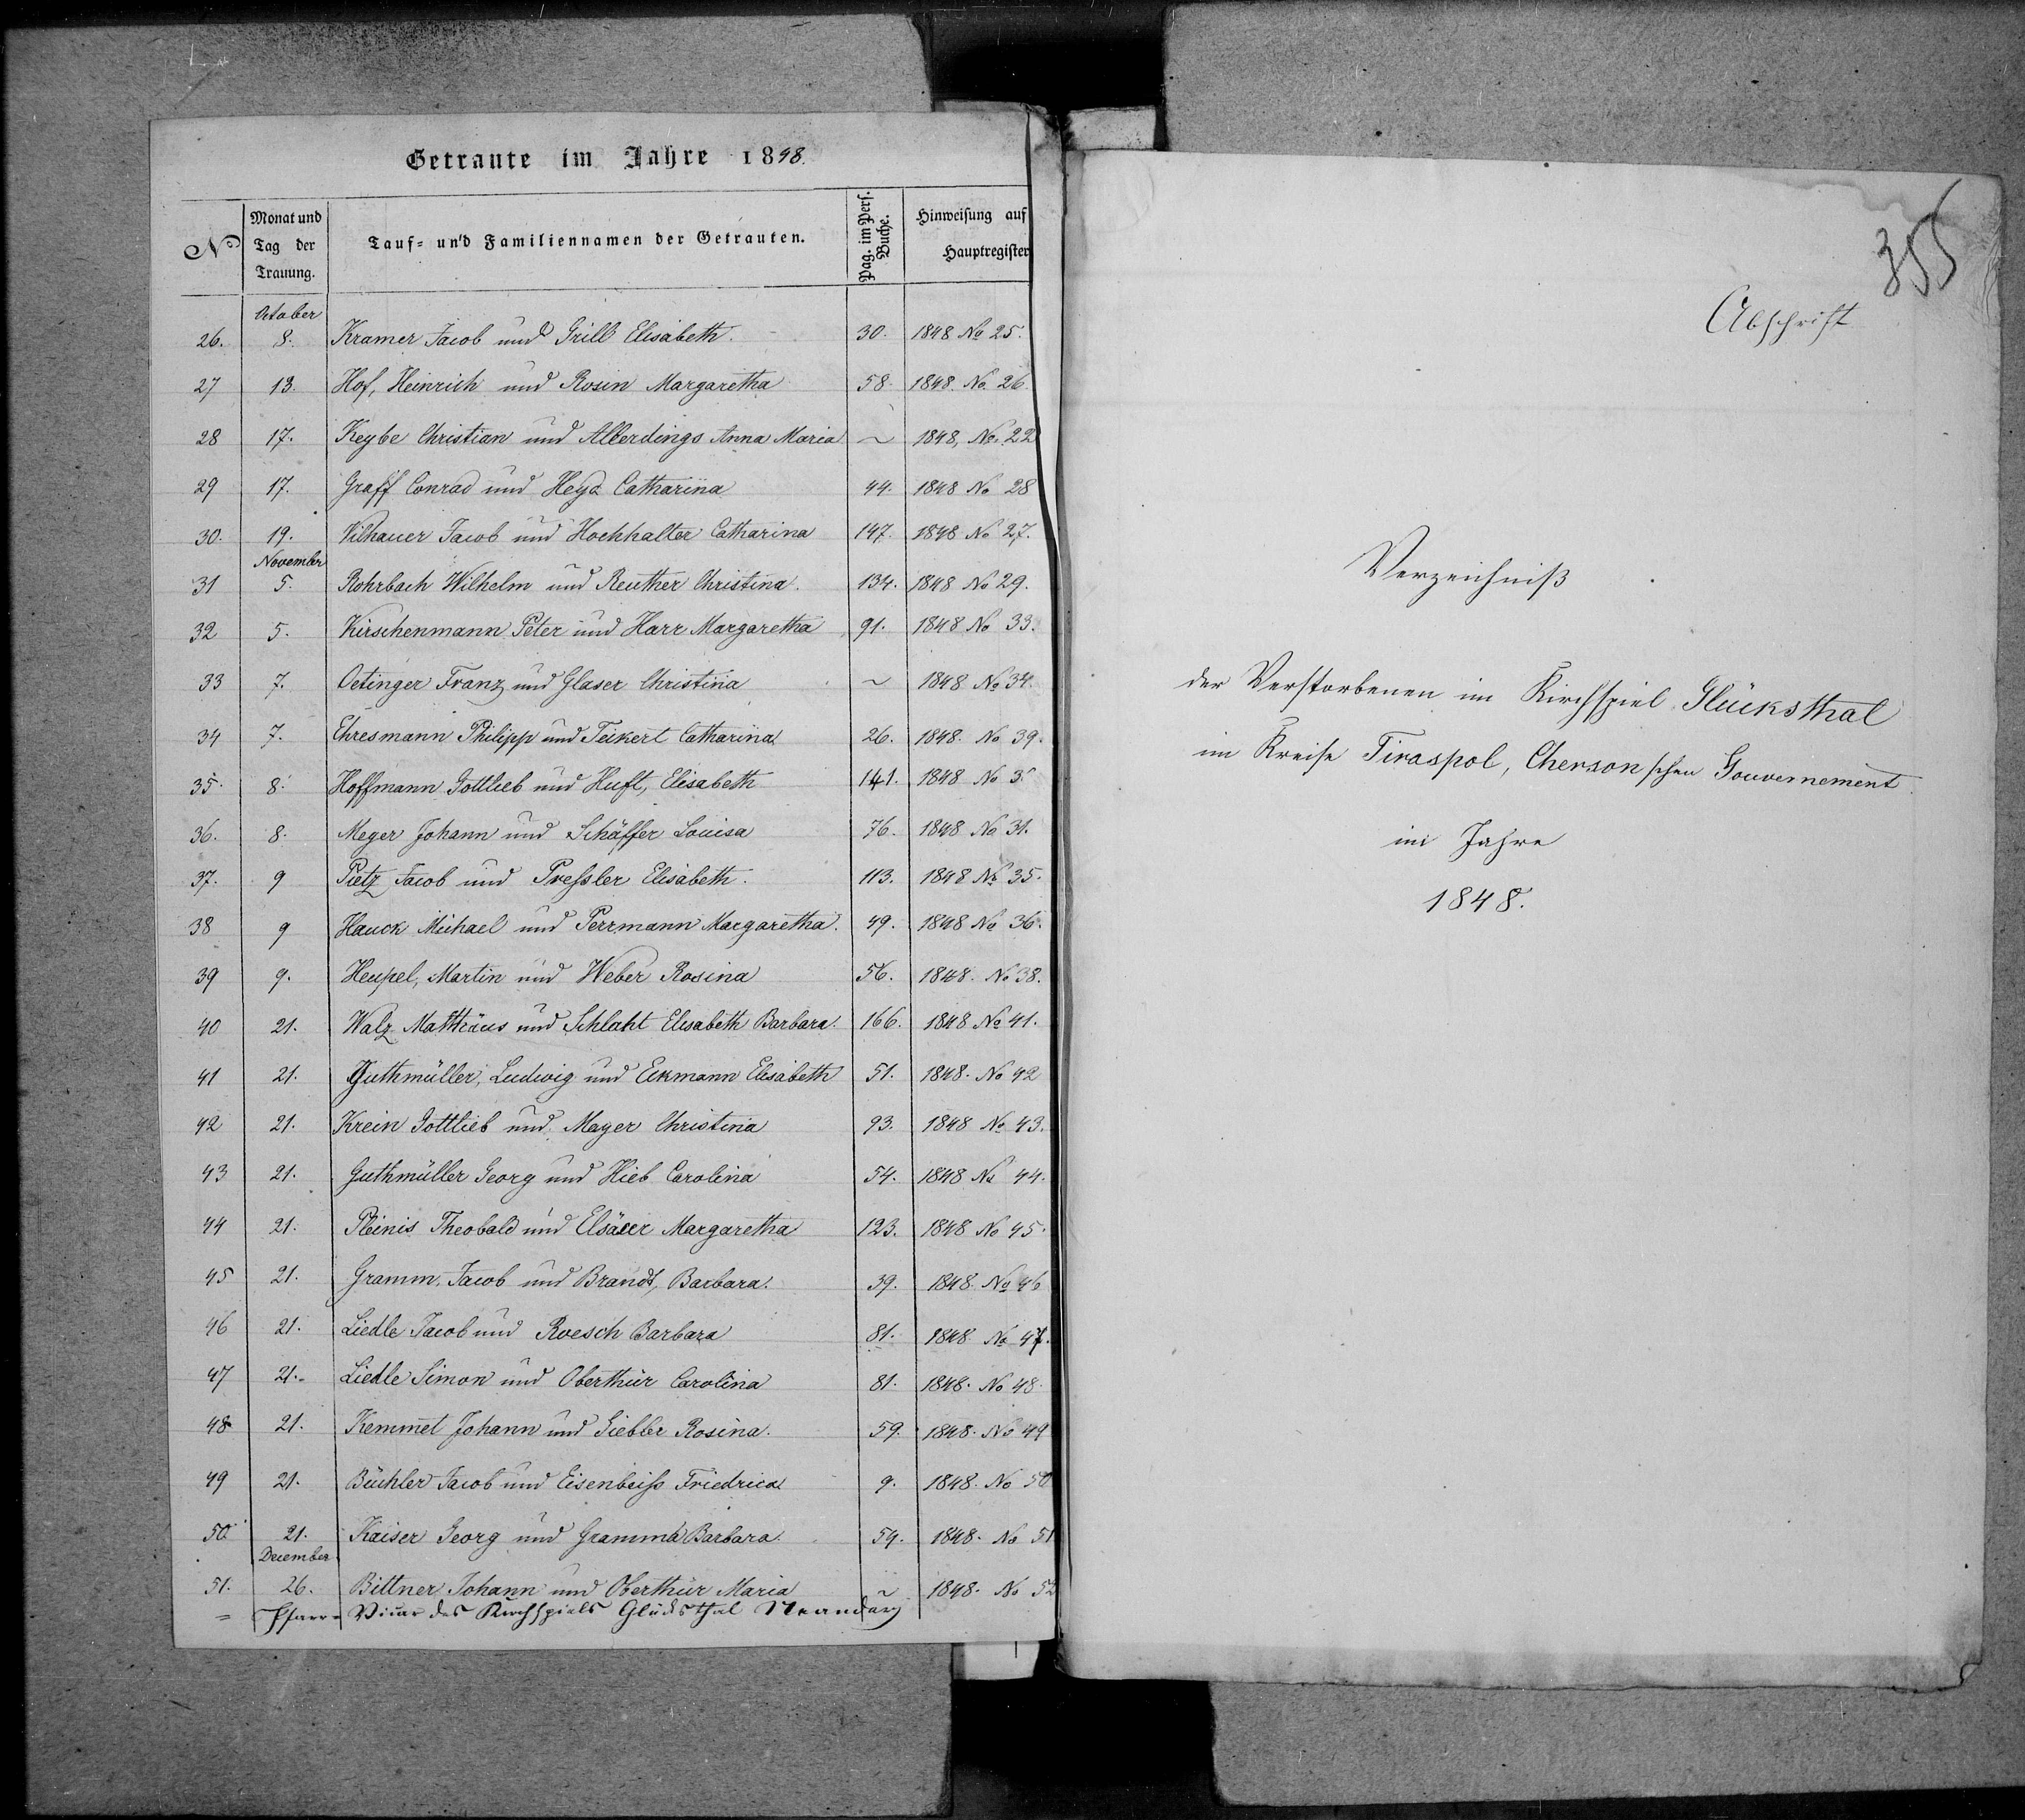 Getraute im Jahre 1848.
No | Monat und Tag der Trauung. | Tauf- und Familiennamen der Getrauten. | Pag. im Pers. Buche. | Hinweisung auf Hauptregister
October
26. 8. Kramer Jacob und Grill Elisabeth. 30. 1848 No 25.
27 13. Hof, Heinrich und Rosin Margaretha 58. 1848. No. 26.
28 17. Keybe Christian und Allerdings Anna Maria ~ 1848, No. 22
29 17. Graff Conrad und Heyd Catharina 44. 1848 No 28
30. 19. Vilhauer Jacob und Hochhalter Catharina 147. 1848 No 27.
November
31 5. Rohrbach Wilhelm und Reuther Christina. 134. 1848 No 29.
32 5. Kirschenmann Peter und Harr Margaretha 91. 1848 No 33.
33 7. Oetinger Franz und Glaser Christina ~ 1848 No 34.
34 7. Ehresmann Philipp und Teikert Catharina 26. 1848. No 39.
35. 8. Hoffmann Gottlieb und Huft, Elisabeth 141. 1848 No
36. 8. Meyer Johann und Schäffer Louisa 76. 1848 No 31.
37. 9 Pietz Jacob und Pressler Elisabeth. 113. 1848 No 35.
38 9 Hauck Michael und Perrmann Margaretha. 49. 1848 No 36.
39 9. Heupel, Martin und Weber Rosina 56. 1848. No 38.
40 21. Walz Matthäus und Schlaht Elisabeth Barbara. 166. 1848 No 41.
41 21. Guthmüller, Ludwig und Eckmann Elisabeth 51. 1848. No 42
42 21. Krein Gottlieb und Mayer Christina 93. 1848 No 43.
43 21. Guthmüller Georg und Hieb Carolina 54. 1848 No 44.
44 21. Pleinis Theobald und Elsässer Margaretha 123. 1848 No 45.
45 21. Gramm, Jacob und Brandt, Barbara. 39. 1848. No 46
46 21. Liedle Jacob und Roesch Barbara 81. 1848 No 47.
47 21. Liedle Simon und Oberthür Carolina 81. 1848. No 48.
48 21. Kemmet Johann und Giebler Rosina. 59. 1848. No 49
49 21. Büchler Jacob und Eisenbeiss Friedrica 9. 1848. No 50
50. 21. Kaiser Georg und Gramm Barbara. 54. 1848. No 51
December
51. 26. Bittner Johann und Oberthür Maria ~ 1848. No 52
= Pfarr-Vicar des Kirchspiels Glücksthal
355
Abschrift
Verzeichniß
der Verstorbenen im Kirchspiel Glücksthal
im Kreise Tiraspol, Chersonschen Gouvernement.
im Jahre
1848.